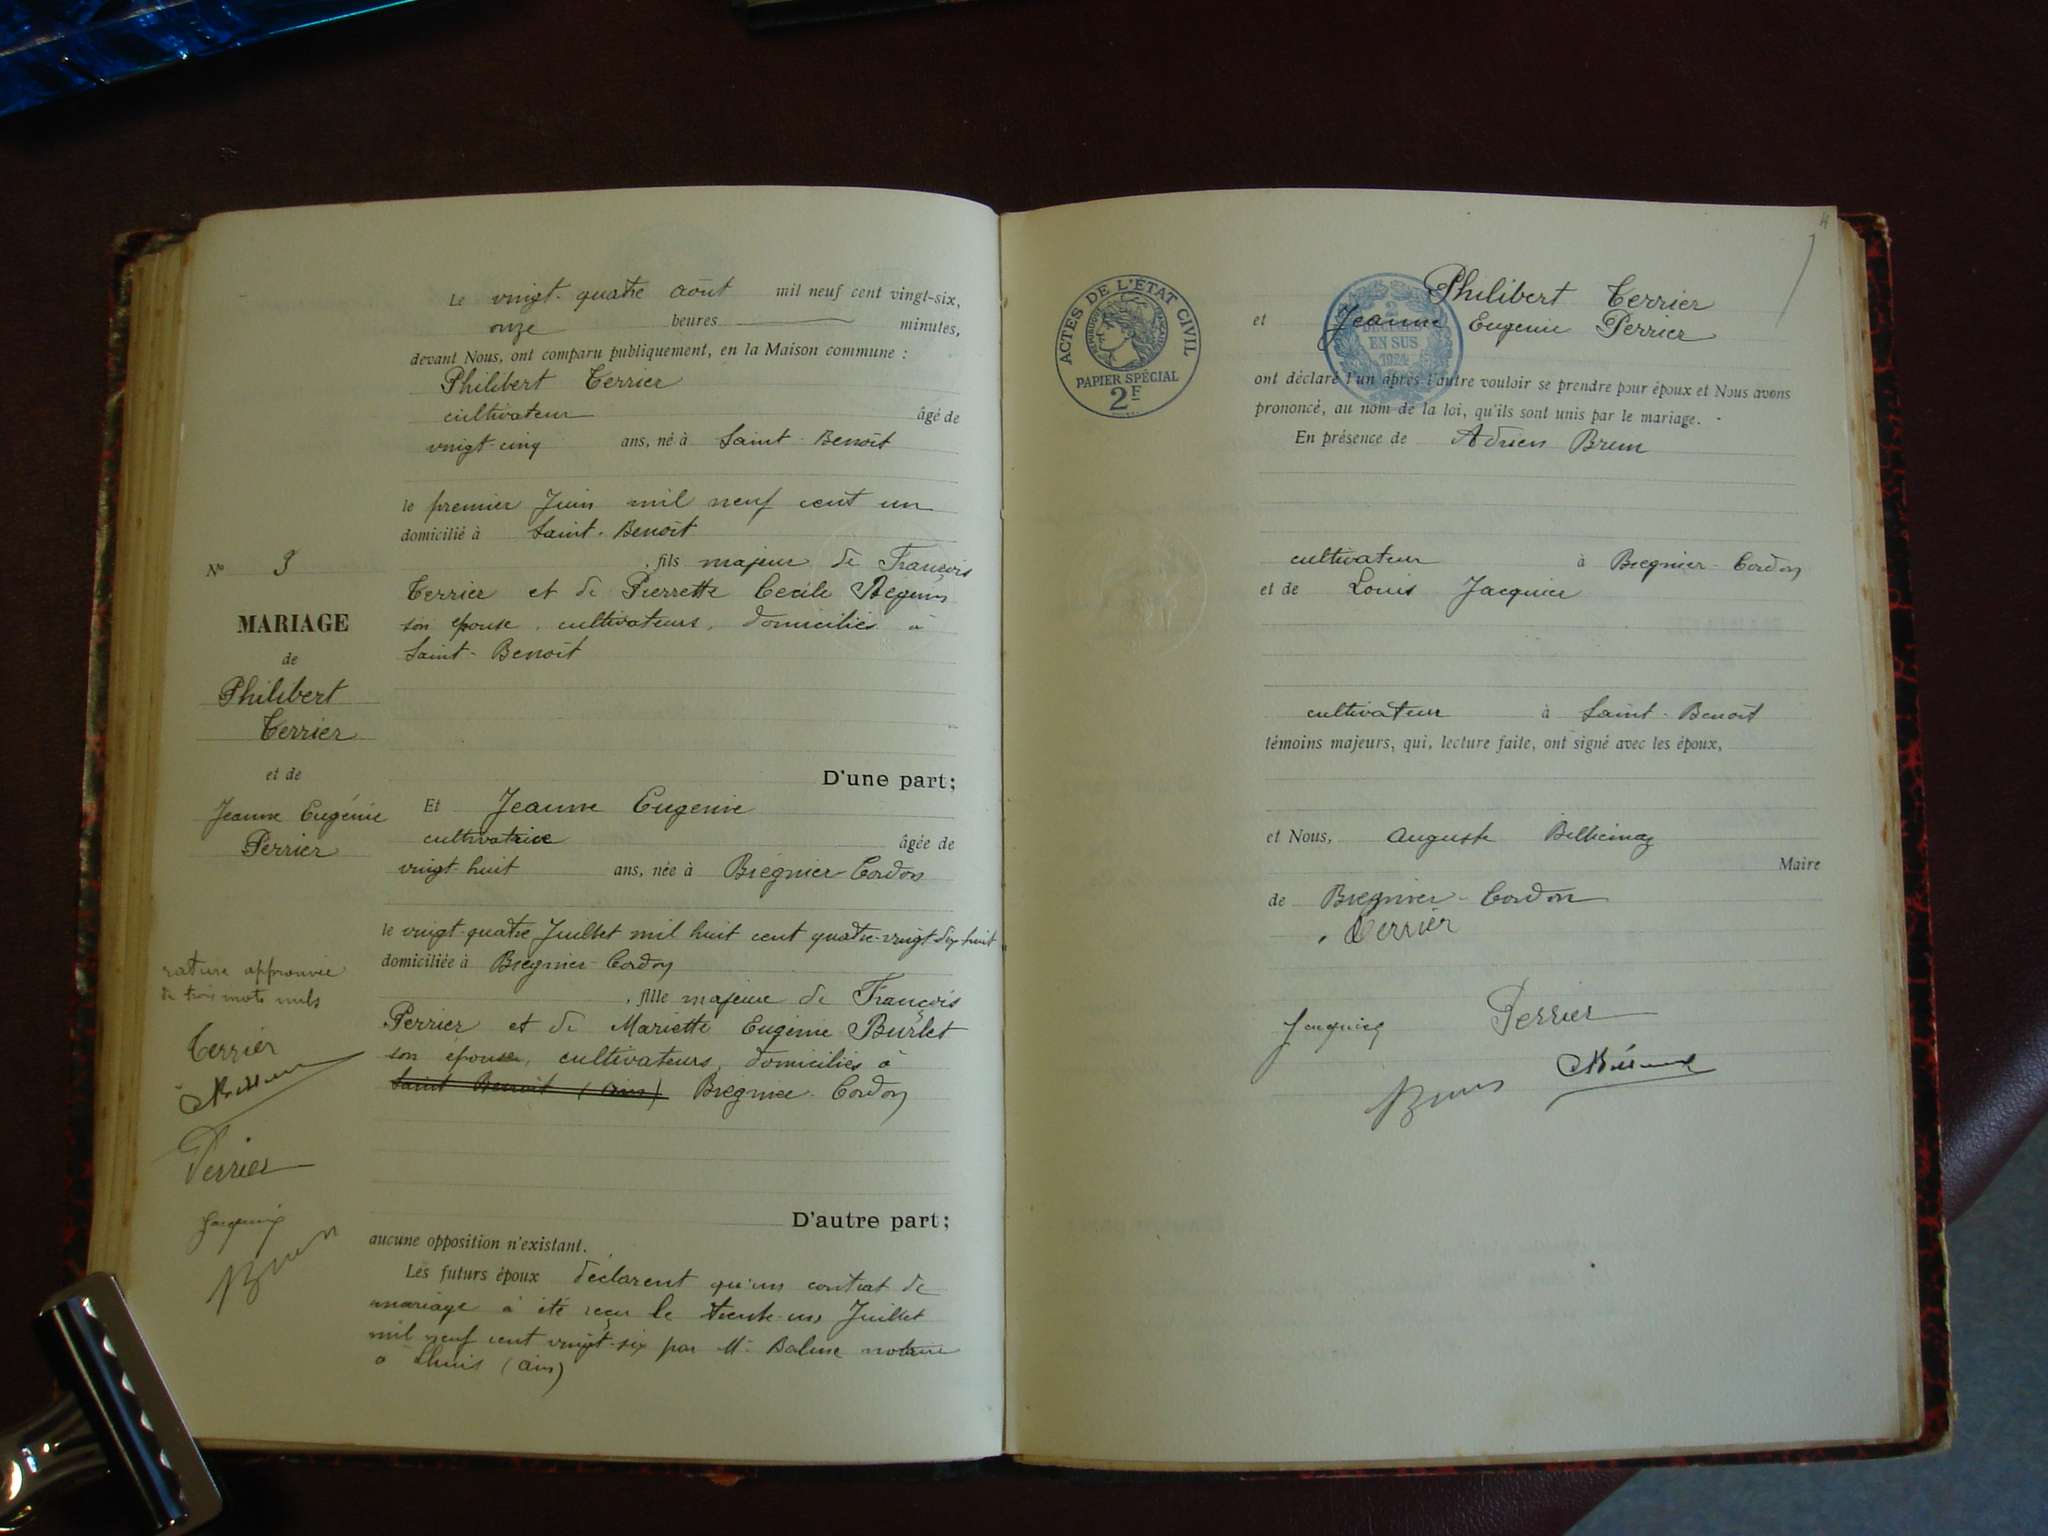 Le vingt-quatre août mil neuf cent vingt-six,
onze heures minutes,
devant Nous, ont comparu publiquement, en la Maison commune :
Philibert Terrier
cultivateur âgé de
vingt-cinq ans, né à Saint-Benoît
le premier Juin mil neuf cent un
domicilié à Saint-Benoît
, fils majeur de François
Terrier et de Pierrette Cécile
son épouse, cultivateurs, domiciliés à
Saint-Benoît
D'une part;
Nº 3
MARIAGE
de
Philibert
Terrier
et de
Jeanne Eugénie
Perrier
Et Jeanne Eugénie
cultivatrice âgée de
vingt-huit ans, née à Brégnier-Cordon
le vingt-quatre Juillet mil huit cent quatre-vingt dix huit
domiciliée à Brégnier-Cordon
, fille majeure de François
Perrier et de Mariette Eugénie Burlet
son épouse, cultivateurs, domiciliés à
Saint Benoit (ain) Brégnier-Cordon
D'autre part;
rature approuvée
de trois mots nuls
Terrier
Perrier
Jacquier
Brun
aucune opposition n'existant.
Les futurs époux déclarent qu'un contrat de
mariage a été reçu le trente-un Juillet
mil neuf cent vingt-six par Me notaire
à Lhuis (ain)
4
ACTES DE L'ÉTAT CIVIL
RÉPUBLIQUE FRANÇAISE
PAPIER SPÉCIAL
2F
2
DÉCIMES
EN SUS
1924
Philibert Terrier
et Jeanne Eugenie Perrier
ont déclaré l'un après l'autre vouloir se prendre pour époux et Nous avons
prononcé, au nom de la loi, qu'ils sont unis par le mariage.
En présence de Adrien Brun
cultivateur à Bregnier-Cordon
et de Louis Jacquier
cultivateur à Saint-Benoît
témoins majeurs, qui, lecture faite, ont signé avec les époux,
et Nous, Auguste
Maire
de Bregnier-Cordon
Terrier
Jacquier Perrier
Brun